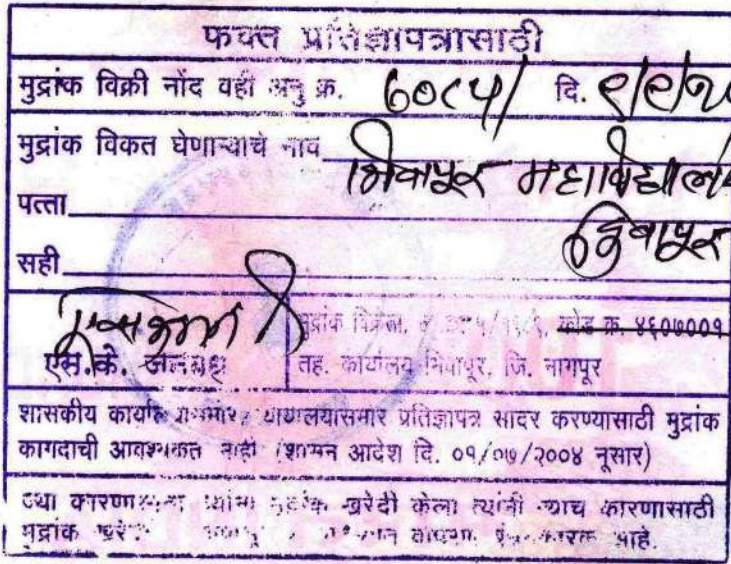 फक्त प्रतिज्ञापत्रासाठी
मुद्रांक विक्री नोंद वही अनु क्र. ७०८५/ दि. ९/९/२०
मुद्रांक विकत घेणाऱ्याचे नाव
भिवापूर महाविद्यालय
पत्ता
भिवापूर
सही
एस.के.
मुद्रांक विक्रेता, कोड क्र. ४६०७००१
तह. कार्यालय भिवापूर, जि. नागपूर
शासकीय कार्यालयासमोर, न्यायालयासमोर प्रतिज्ञापत्र सादर करण्यासाठी मुद्रांक
कागदाची आवश्यकता नाही (शासन आदेश दि. ०१/०७/२००४ नूसार)
ज्या कारणासाठी ज्यांनी मुद्रांक खरेदी केला त्यांनी त्याच कारणासाठी
मुद्रांक आहे.